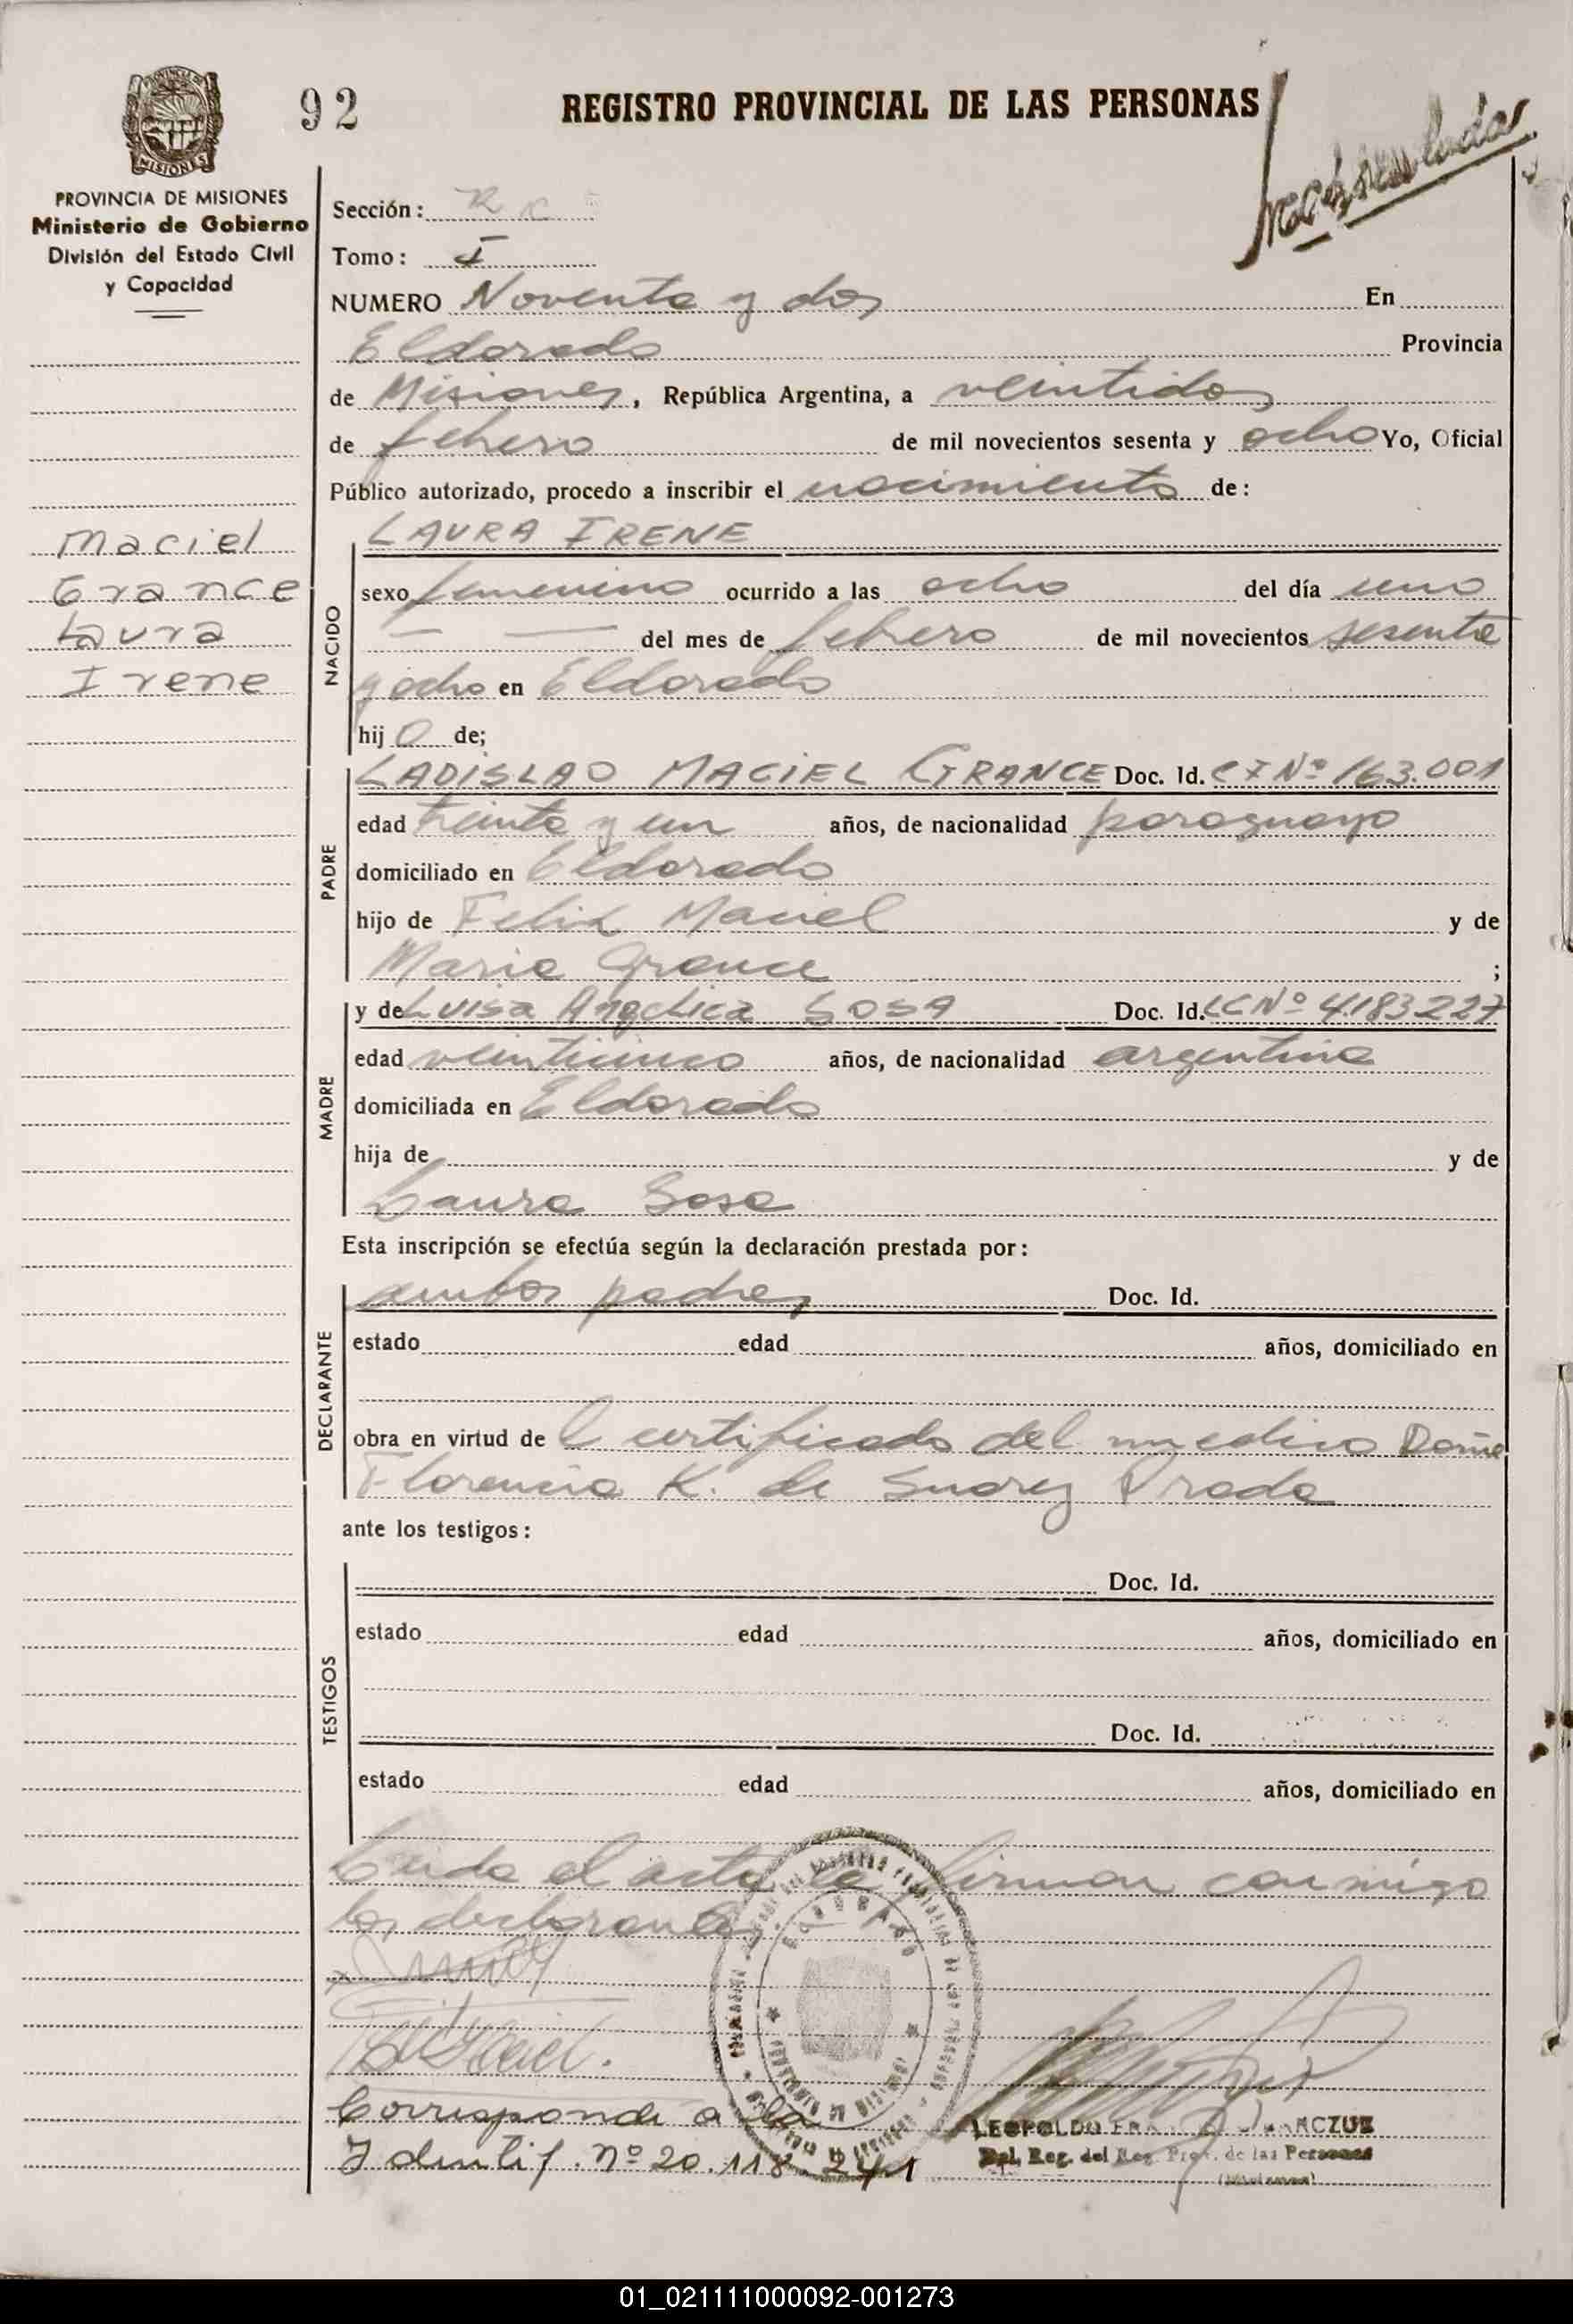 92
REGISTRO PROVINCIAL DE LAS PERSONAS
PROVINCIA DE MISIONES
Ministerio de Gobierno
División del Estado Civil
y Capacidad
Maciel
Grance
Laura
Irene
Sección:
Tomo: I
NUMERO Noventa y dos En
Eldorado Provincia
de Misiones, República Argentina, a veintidos
de febrero de mil novecientos sesenta y ocho Yo, Oficial
Público autorizado, procedo a inscribir el nacimiento de:
NACIDO
LAURA IRENE
sexo femenino ocurrido a las ocho del día uno
— — del mes de febrero de mil novecientos sesenta
y ocho en Eldorado
hij a de;
PADRE
LADISLAO MACIEL GRANCE Doc. Id. CI Nº 163.001
edad treinta y un años, de nacionalidad paraguayo
domiciliado en Eldorado
hijo de Felix Maciel y de
Maria Grance ;
MADRE
y de Luisa Angelica SOSA Doc. Id. LC Nº 4.183.227
edad veinticinco años, de nacionalidad argentina
domiciliada en Eldorado
hija de y de
Laura Sosa
Esta inscripción se efectúa según la declaración prestada por:
DECLARANTE
ambos padres Doc. Id.
estado edad años, domiciliado en
obra en virtud de l certificado del medico Doña
Florencia K. de Suarez Prada
ante los testigos:
TESTIGOS
Doc. Id.
estado edad años, domiciliado en
Doc. Id.
estado edad años, domiciliado en
Leida el acta la firman conmigo
los declarantes.
Corresponde a la
Identif. Nº 20.118.241
LEOPOLDO
Del. Reg. del Reg. Prov. de las Personas
(Misiones)
01_021111000092-001273